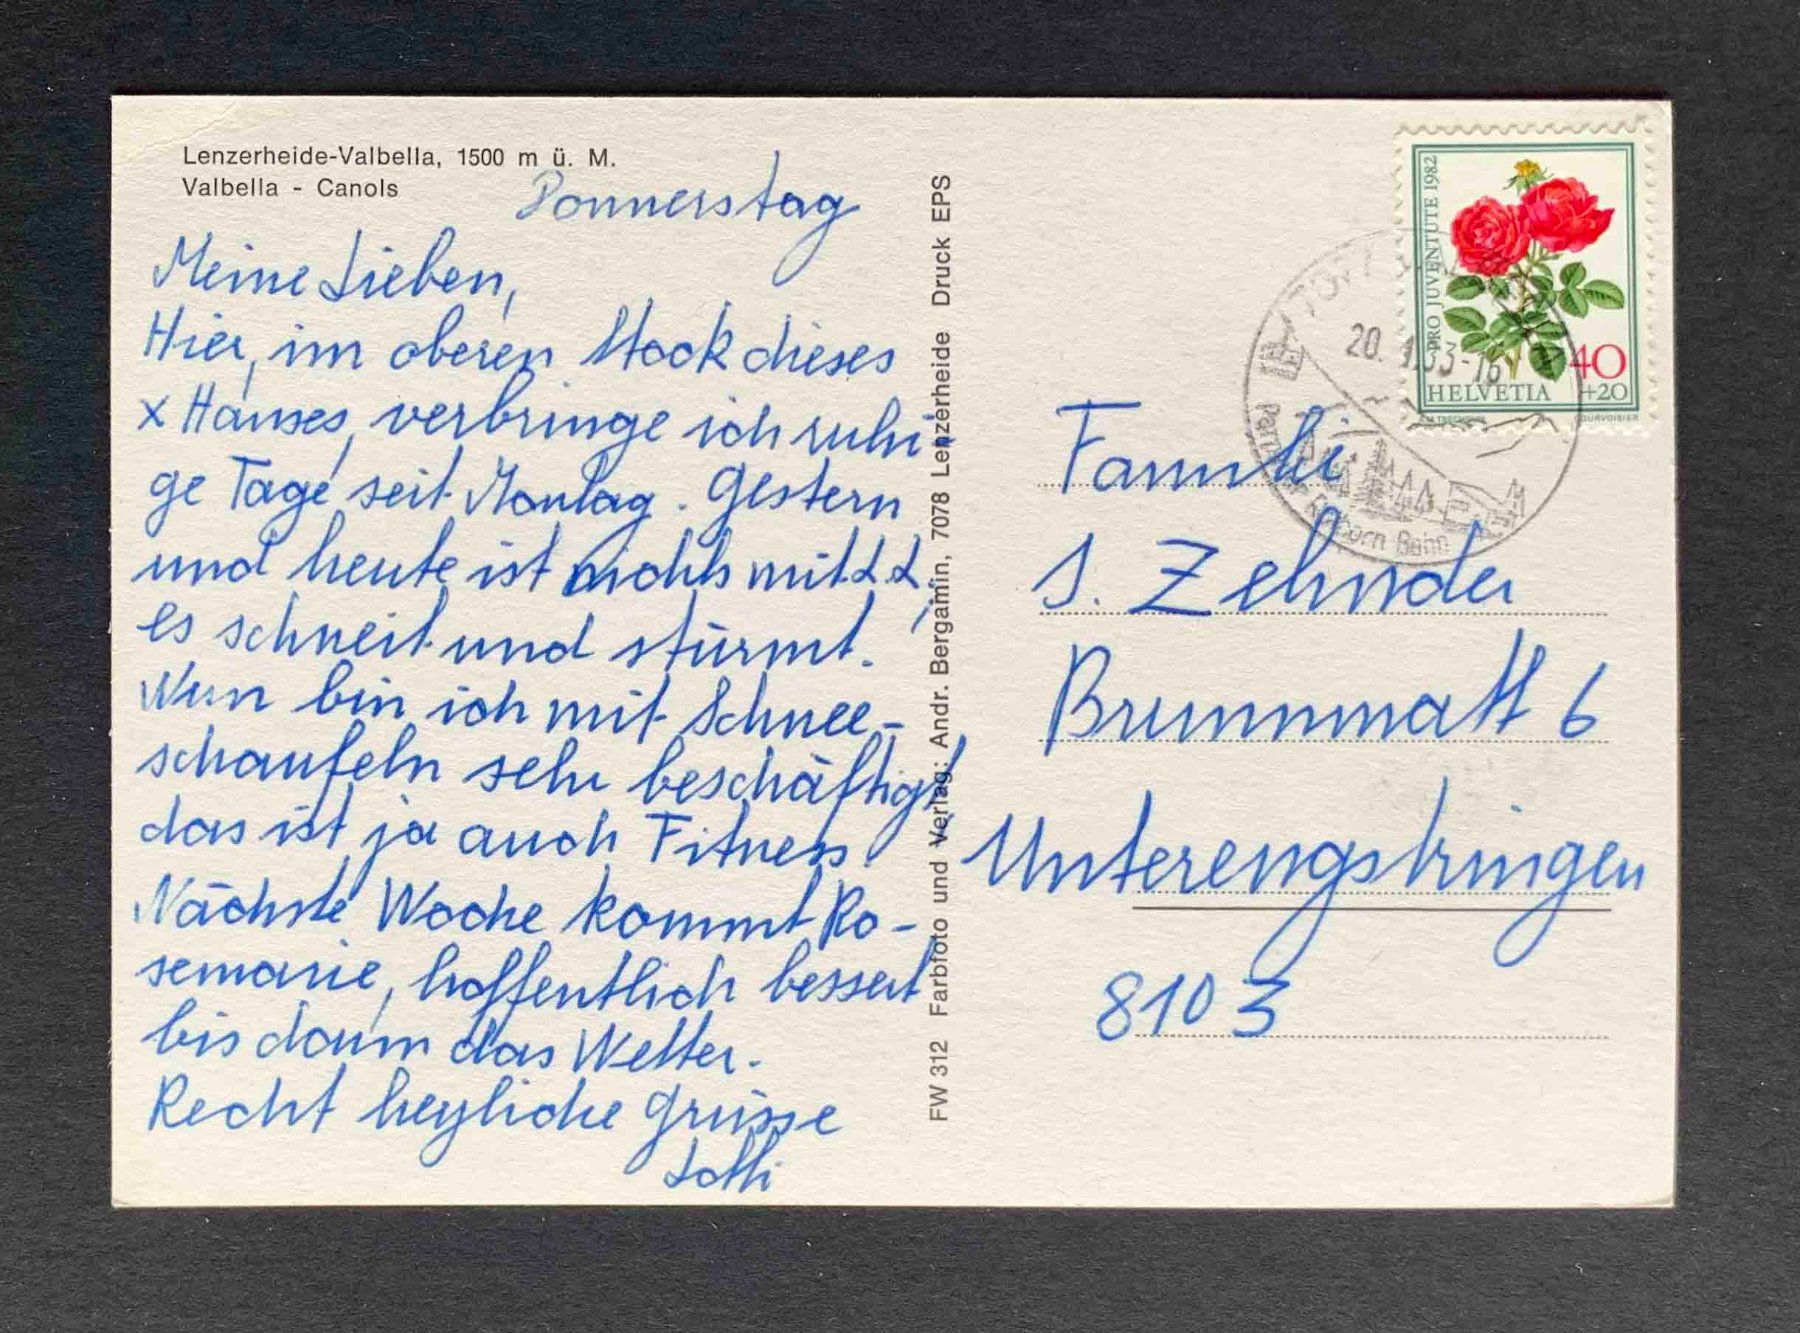 Lenzerheide-Valbella, 1500 m ü. M.
Valbella - Canols
Donnerstag
Meine Lieben,
Hier, im oberen Stock dieses
x Hauses, verbringe ich ruhi-
ge Tage seit Montag. Gestern
und heute ist nichts mit LL,
es schneit und stürmt.
Nun bin ich mit Schnee-
schaufeln sehr beschäftigt,
das ist ja auch Fitness!
Nächste Woche kommt Ro-
semarie, hoffentlich bessert
bis dann das Wetter.
Recht herzliche Grüsse
Lotti
FW 312 Farbfoto und Verlag: Andr. Bergamin, 7078 Lenzerheide Druck EPS
PRO JUVENTUTE 1982
40
+20
HELVETIA
COURVOISIER
20. 1. 83-16
Rothorn Bahn
Familie
J. Zehnder
Brunnmatt 6
Unterengstringen
8103